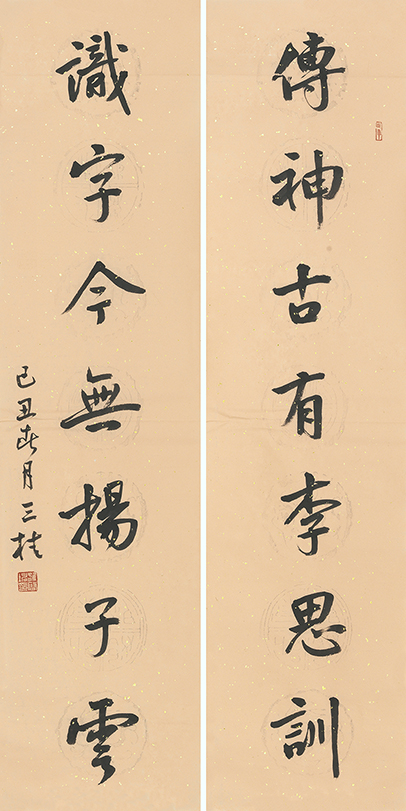 傳神古有李思訓
識字今無揚子雲
己丑春月三桂